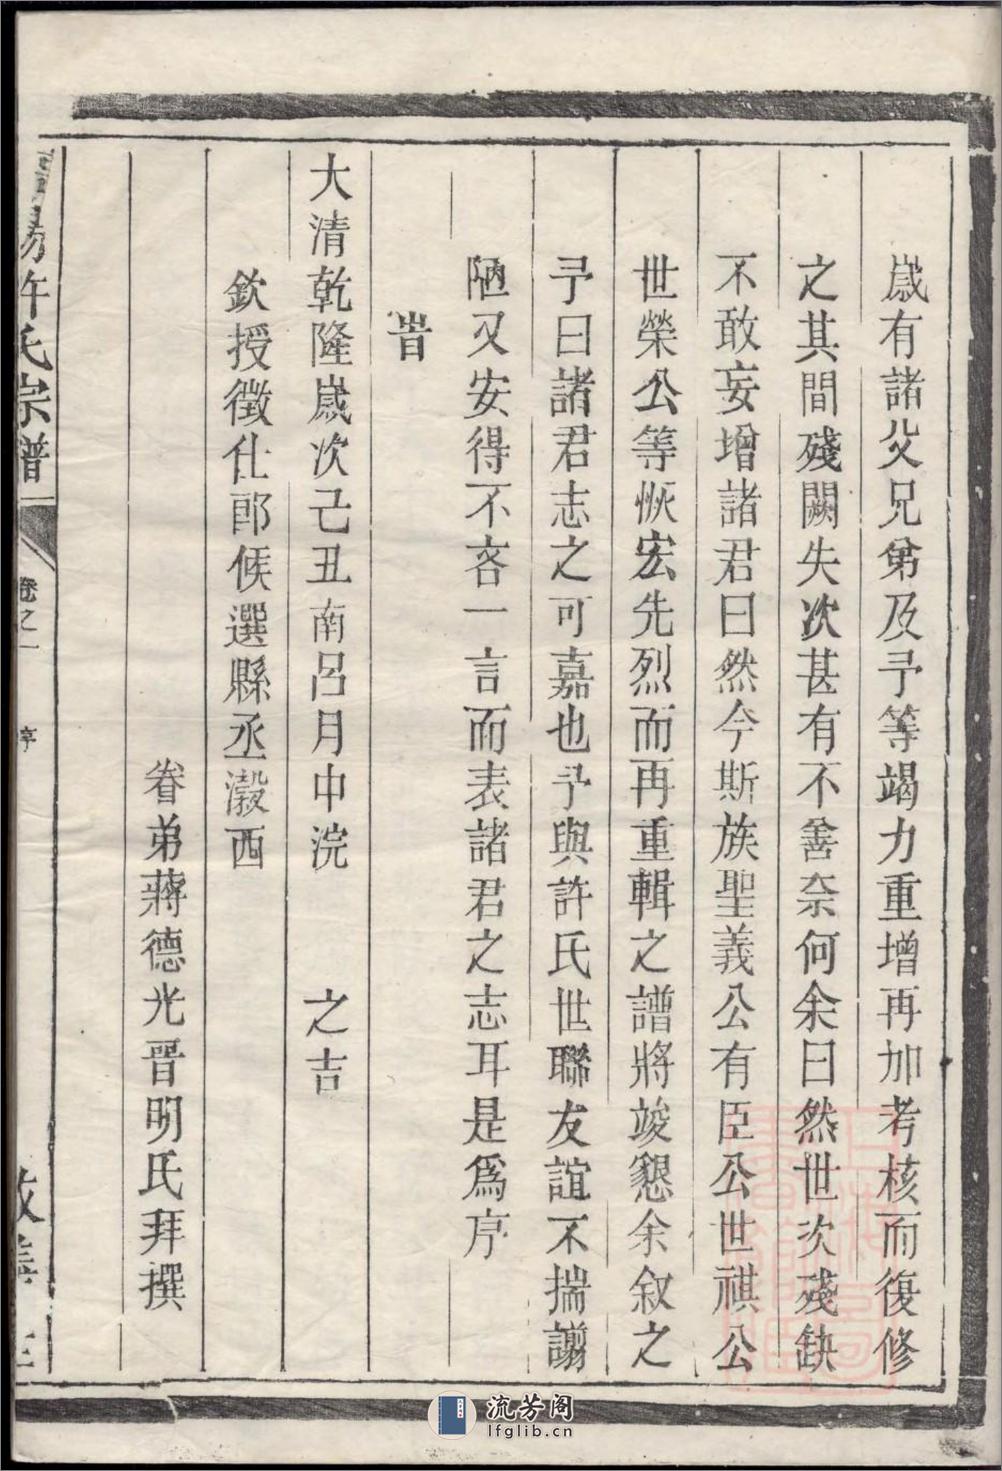 歲有諸父兄弟及予等竭力重增再加考核而復修
之其間殘闕失次甚有不善奈何余曰然世次殘缺
不敢妄增諸君曰然今斯族聖義公有臣公世祺公
世榮公等恢宏先烈而再重輯之譜將竣懇余叙之
予曰諸君志之可嘉也予與許氏世聯友誼不揣謭
陋又安得不吝一言而表諸君之志耳是爲序
旹
大清乾隆歲次己丑南呂月中浣 之吉
欽授徵仕郎候選縣丞瀫西
眷弟蔣德光晋明氏拜撰
許氏宗譜 卷之一 序
流芳阁
lfglib.cn